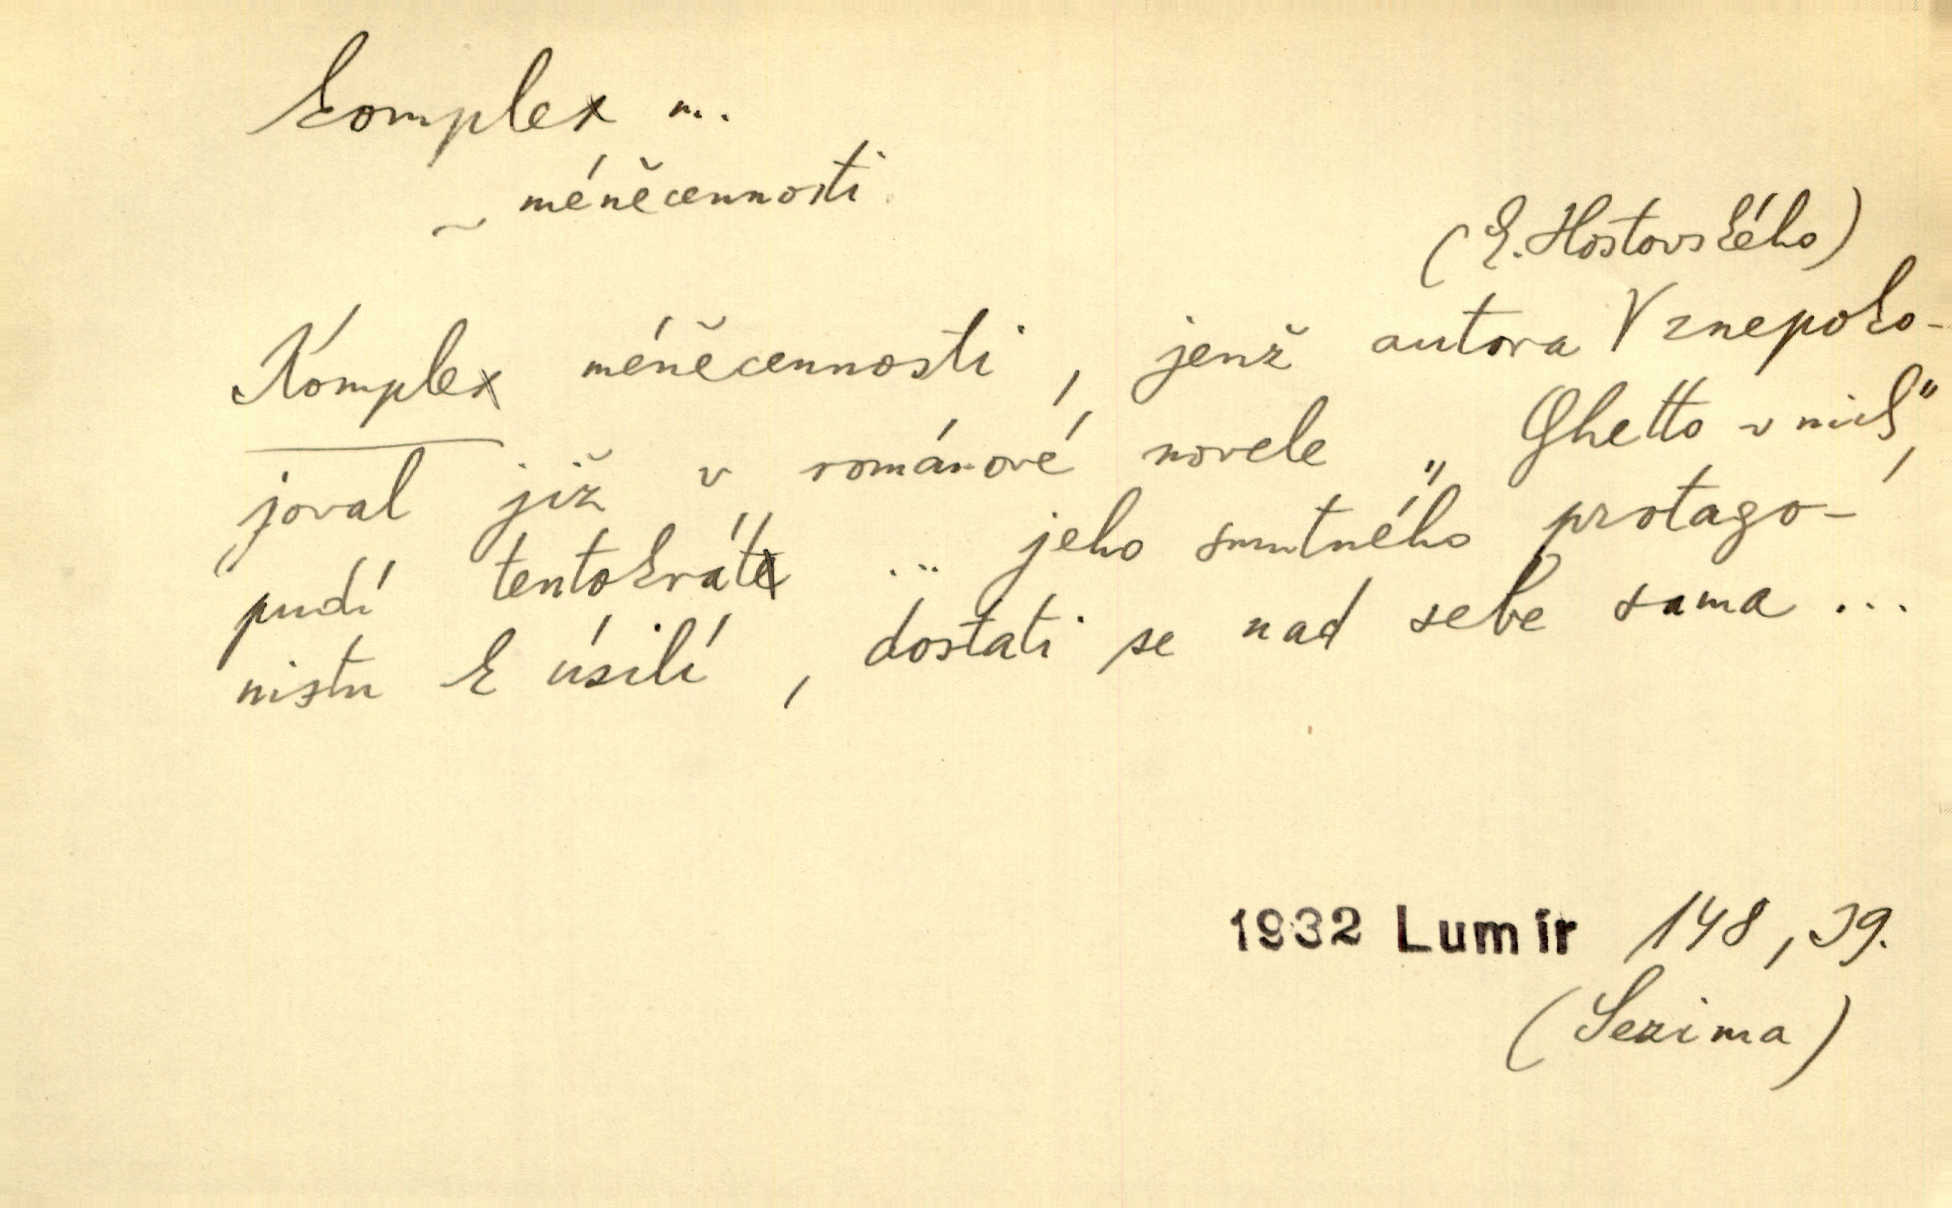 komplex m.
~ méněcennosti
(E. Hostovského)
Komplex méněcennosti, jenž autora V znepoko-
joval již v románové novele „Ghetto v nich",
pudí tentokráte ... jeho smutného protago-
nistu k úsilí, dostati se nad sebe sama ...
1932 Lumír 148, 39.
(Sezima)